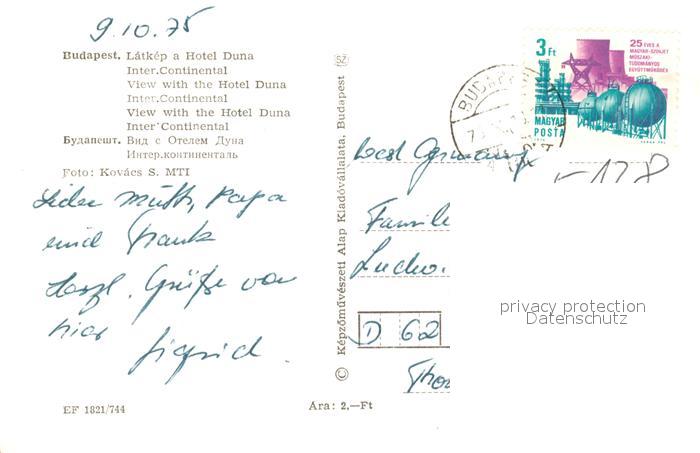 9.10.75
Budapest. Látkép a Hotel Duna
Inter.Continental
View with the Hotel Duna
Inter.Continental
View with the Hotel Duna
Inter Continental
Будапешт. Вид с Отелем Дуна
Интер.континенталь
Foto: Kovács S. MTI
Mutti, Papa
und Frank
Herzl. Grüße von
hier
Sigrid.
EF 1821/744
Ára: 2,—Ft
© Képzőművészeti Alap Kiadóvállalata, Budapest
SZ
BUDAPEST
3 Ft
25 ÉVES A
MAGYAR-SZOVJET
MŰSZAKI-
TUDOMÁNYOS
EGYÜTTMŰKÖDÉS
MAGYAR
POSTA
West Germany
Familie
D 62
privacy protection
Datenschutz